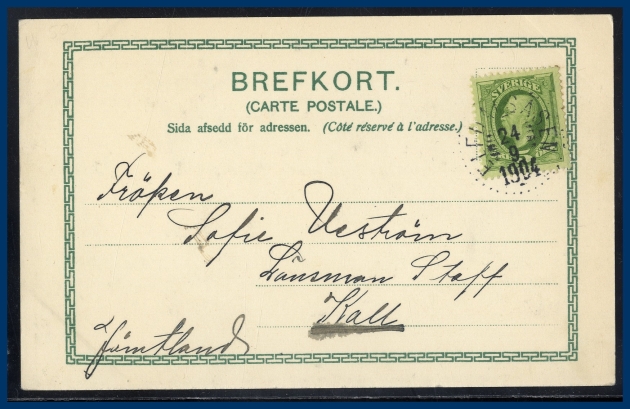 BREFKORT.
(CARTE POSTALE.)
Sida afsedd för adressen. (Côté réservé à l'adresse.)
SVERIGE
24
9
1904
Fröken
Sofie
Länsman Staff
Kall
Jämtland